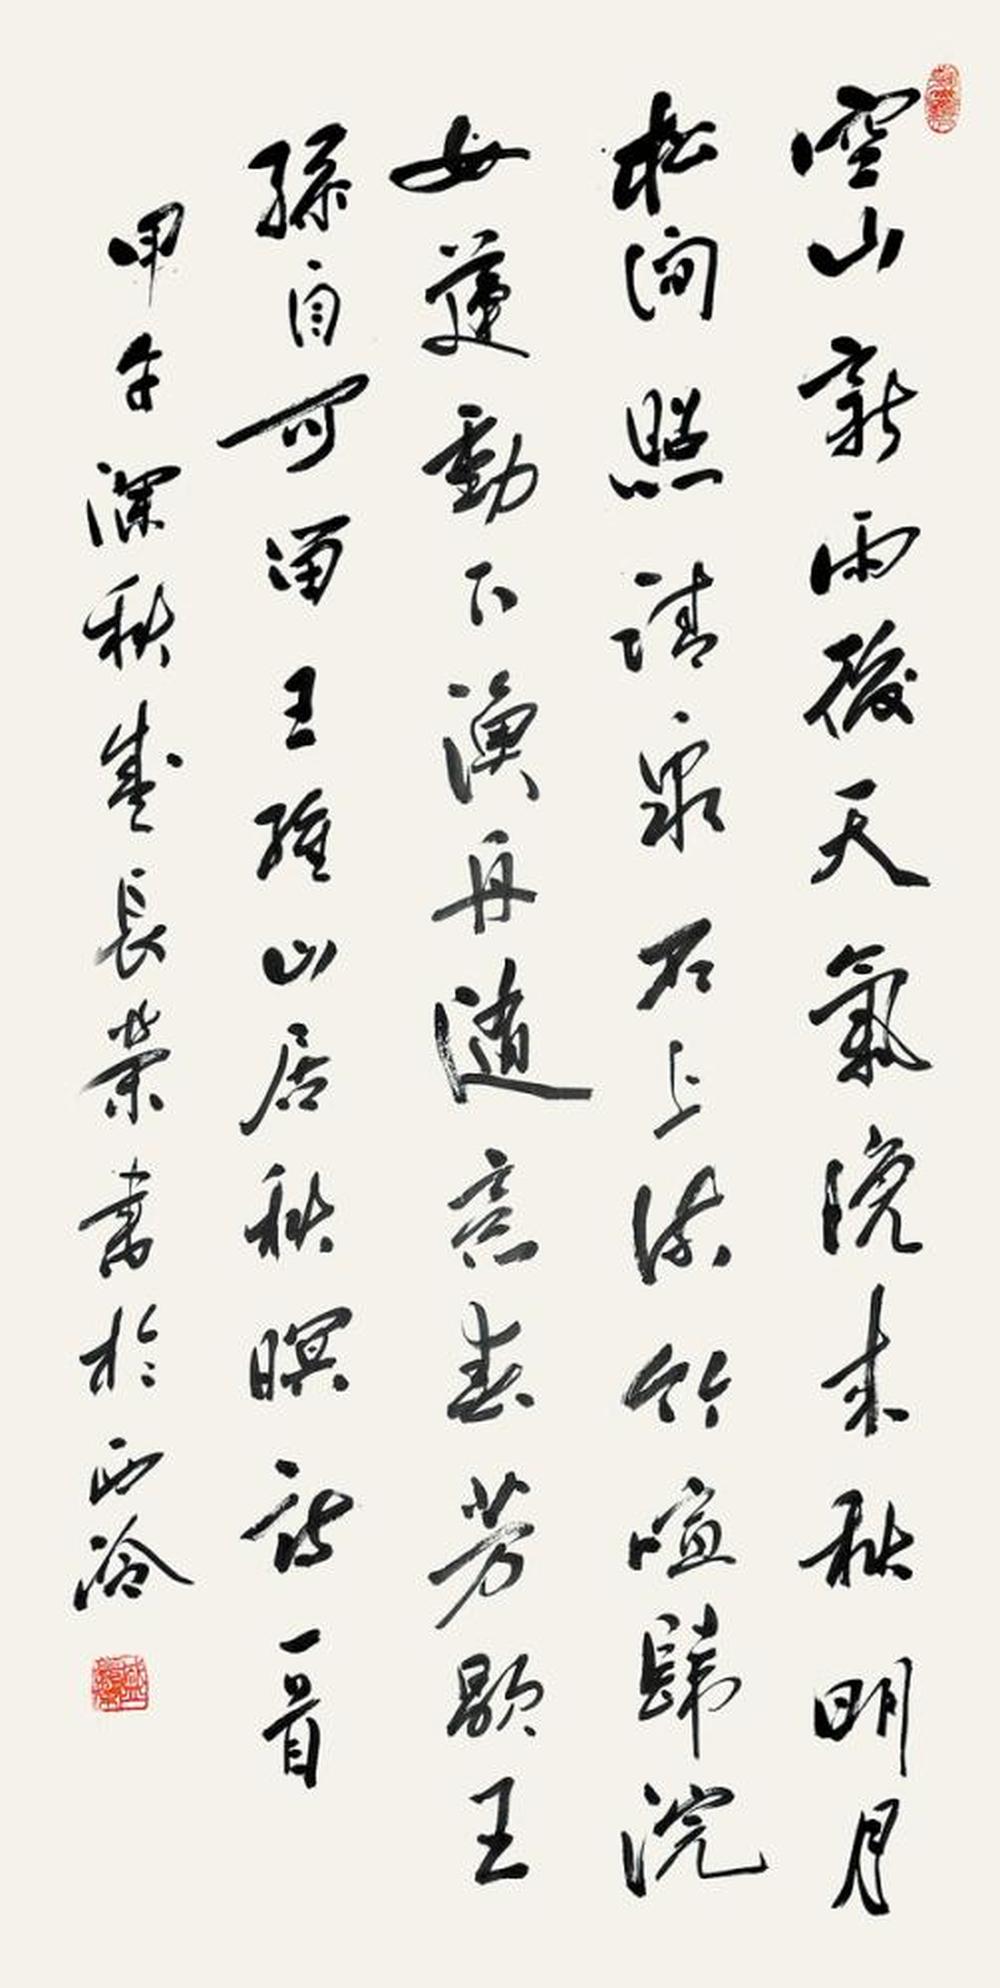 空山新雨後天氣晚来秋明月
松間照清泉石上流竹喧歸浣
女蓮動下漁舟随意春芳歇王
孫自可留王維山居秋暝詩一首
甲午深秋盛長榮書於西泠